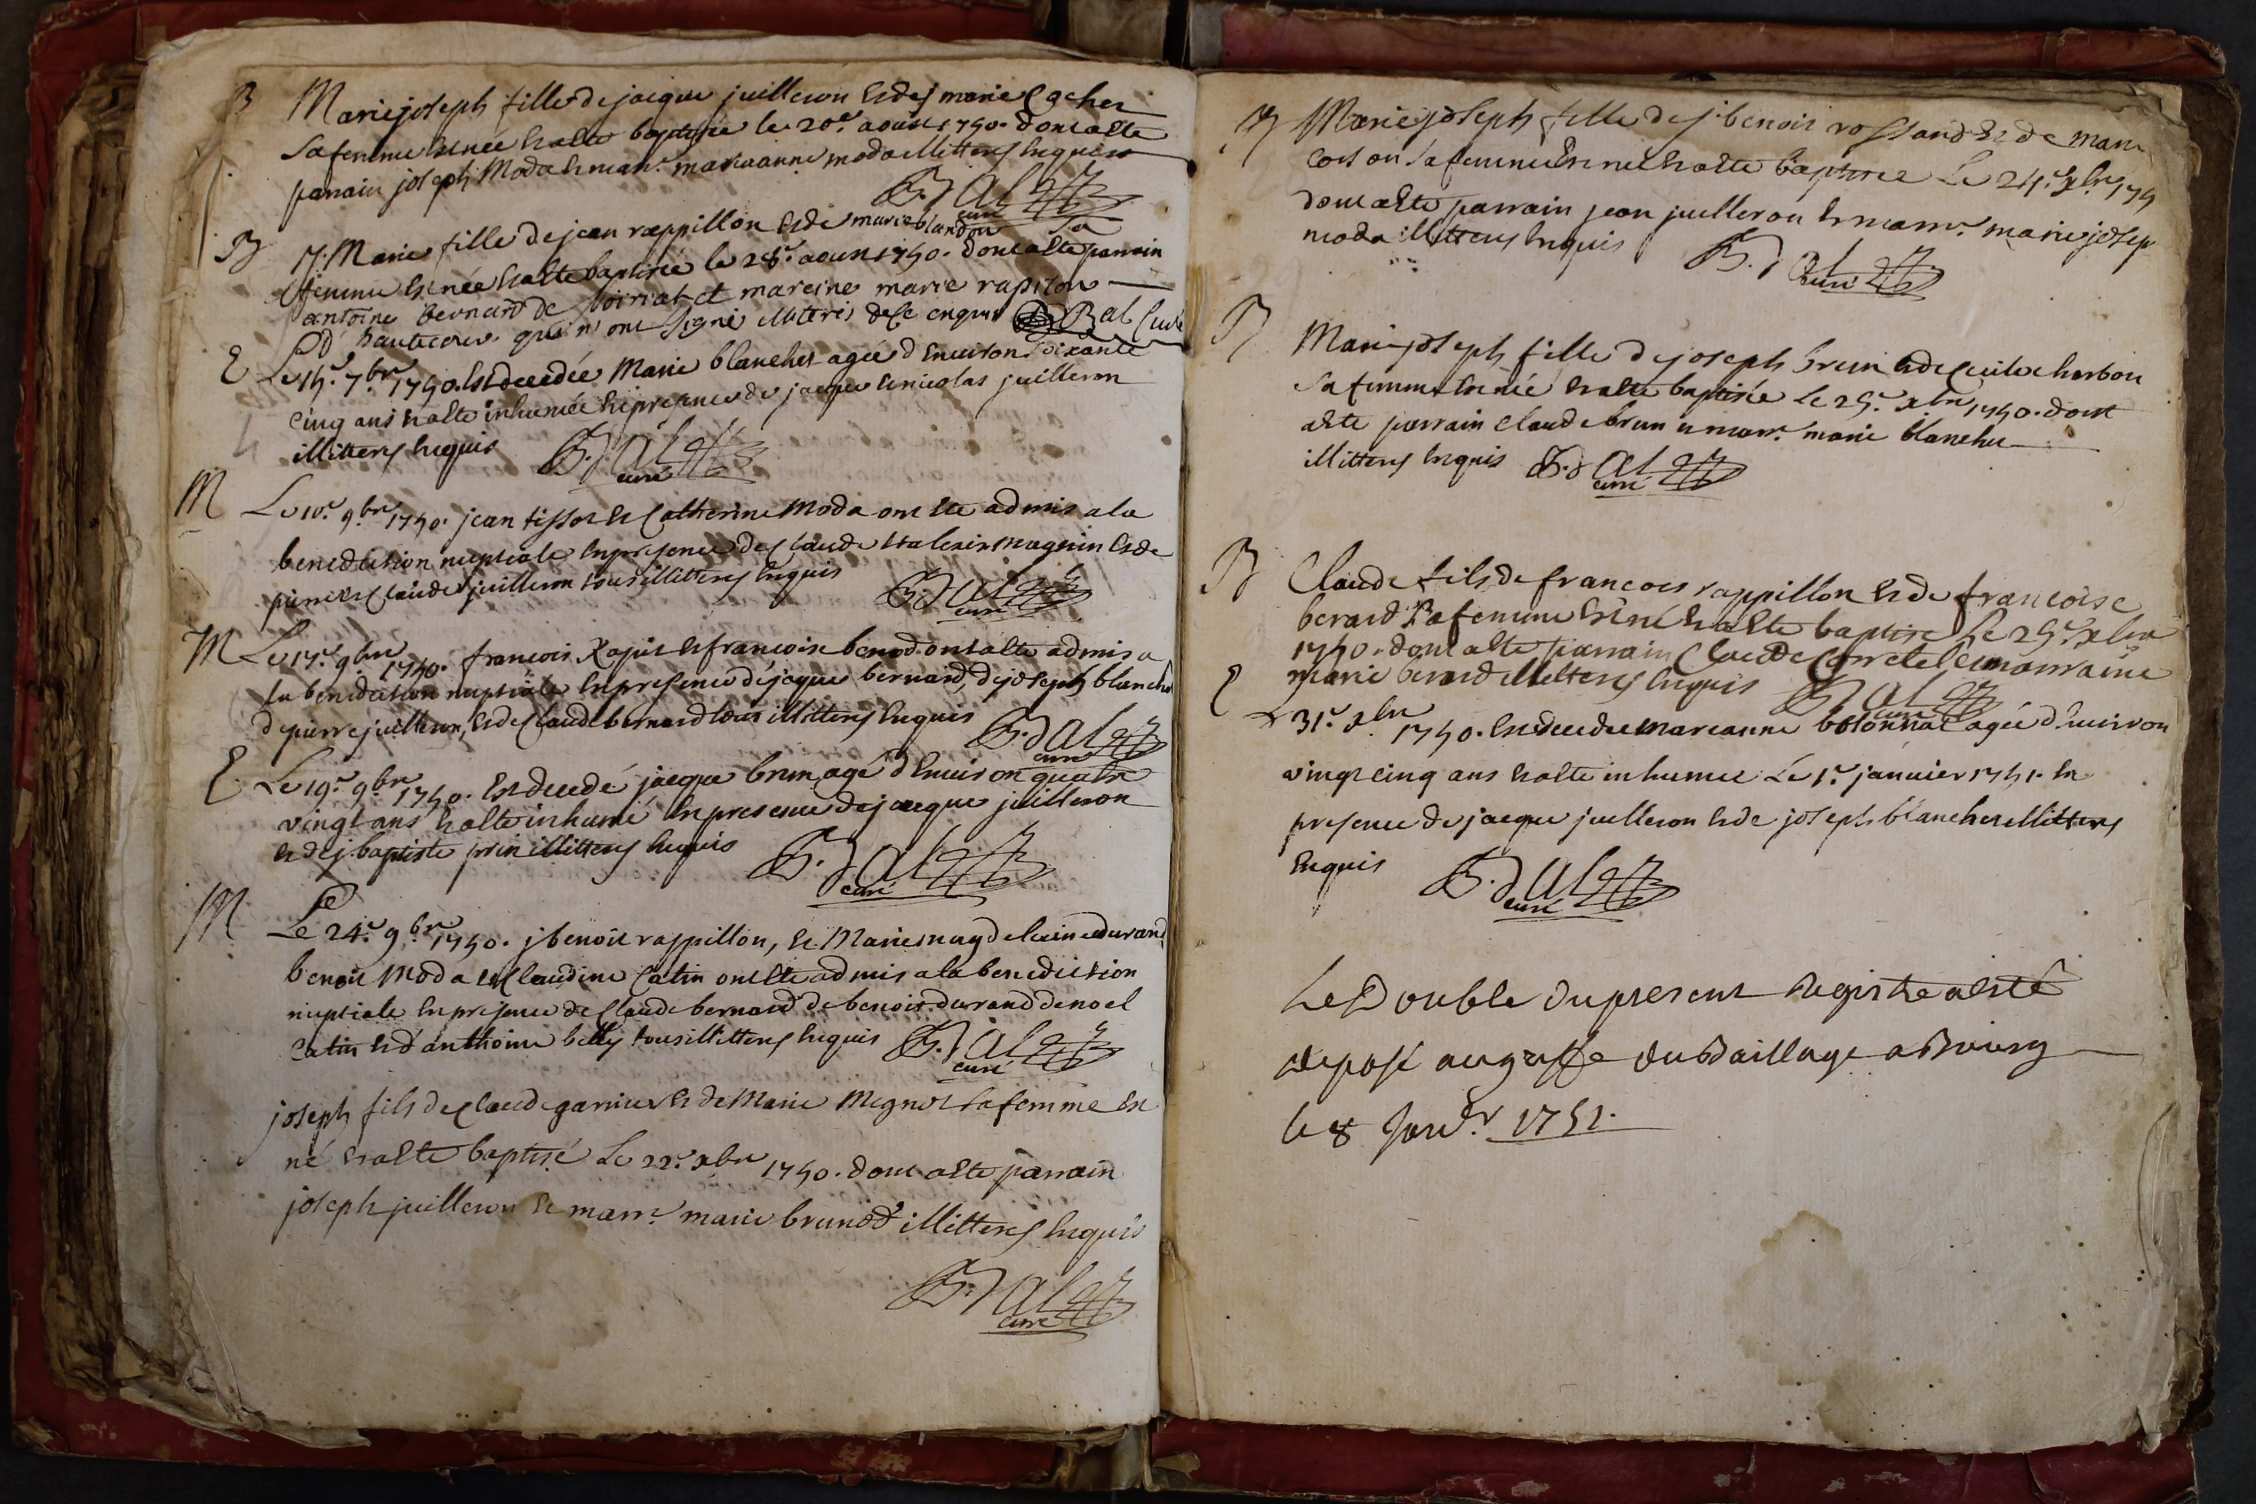 B Marie joseph fille de jacque juilleron Et de j marie Cochet
sa femme Est née Et a Ete baptisée le 20.e aoust 1750. dont a Ete
parrain joseph Moda Et marr.e marieanne moda illitterés Enquis
B. dal curé
B j. Marie fille de jean rappillon Et de marie blandon sa
femme Est née Et a Ete baptisée le 28.e aoust 1750. dont a Ete parrain
antoine bernard de et mareine marie rapilon
d'hautecour qui n'ont signé illiteré de ce enquis B Bal Curé
E Le 15.e 7.bre 1750. Est decedée Marie blanchet agée d'Environ soixante
cinq ans Et a Ete inhumée En presence de jacque Et nicolas juilleron
illitterés Enquis B. dal curé
M Le 10.e 9.bre 1750. jean tissot Et Catherine Moda ont Ete admis a la
benediction nuptiale En presence de Claude Et alexis magnin Et de
pierre Et Claude juilleron tous illitterés Enquis
B. dal curé
M Le 17.e 9.bre 1750. francois Et francoise benod ont a Ete admis a
la benediction nuptiale En presence de jacque bernard, de joseph blanchet
de pierre juilleron, Et de Claude bernard tous illitterés Enquis B. dal curé
E Le 19.e 9.bre 1750. Est decedé jacque brun agé d'Environ quatre
vingt ans Et a Ete inhumé En presence de jacque juilleron
Et de j. baptiste prin illitterés Enquis B. dal curé
M Le 24.e 9.bre 1750. j benoit rappillon, Et Marie magdeleine durand
benoit Moda et Claudine Catin ont Ete admis a la benediction
nuptiale En presence de Claude bernard de benoit durand de noel
Catin Et d'anthoine billy tous illitterés Enquis B. dal curé
joseph fils de Claude garnier Et de Marie Mignot sa femme Est
né Et a Ete baptisé Le 22.e xbre 1750. dont a Ete parrain
joseph juilleron Et marr.e marie brunod illitterés Enquis
B. dal curé
B Marie joseph fille de j. benoit rossand Et de marie
sa femme Est née Et a Ete baptisée Le 24.e xbre 175
dont a Ete parrain jean juilleron Et marr.e marie josep
moda illitterés Enquis B. dal curé
B Marie joseph fille de joseph brun Et de Cecile charbon
sa femme Est née Et a Ete baptisée Le 25.e xbre 1750. dont
a Ete parrain claude brun Et marr.e marie blanchet
illitterés Enquis B. dal curé
B Claude fils de francois rappillon Et de francoise
berard sa femme Est né Et a Ete baptisé Le 25.e xbre
1750. dont a Ete parrain Claude Et marraine
marie berard illitterés Enquis B. dal curé
E Le 31.e xbre 1750. Est decedée marianne agée d'Environ
vingt cinq ans Et a Ete inhumée Le 1.er janvier 1751. En
presence de jacque juilleron Et de joseph blanchet illitterés
Enquis B. dal curé
Le Double du present Registre a Esté
deposé au greffe du Baillage a Bourg
le 8 Janv.er 1751.